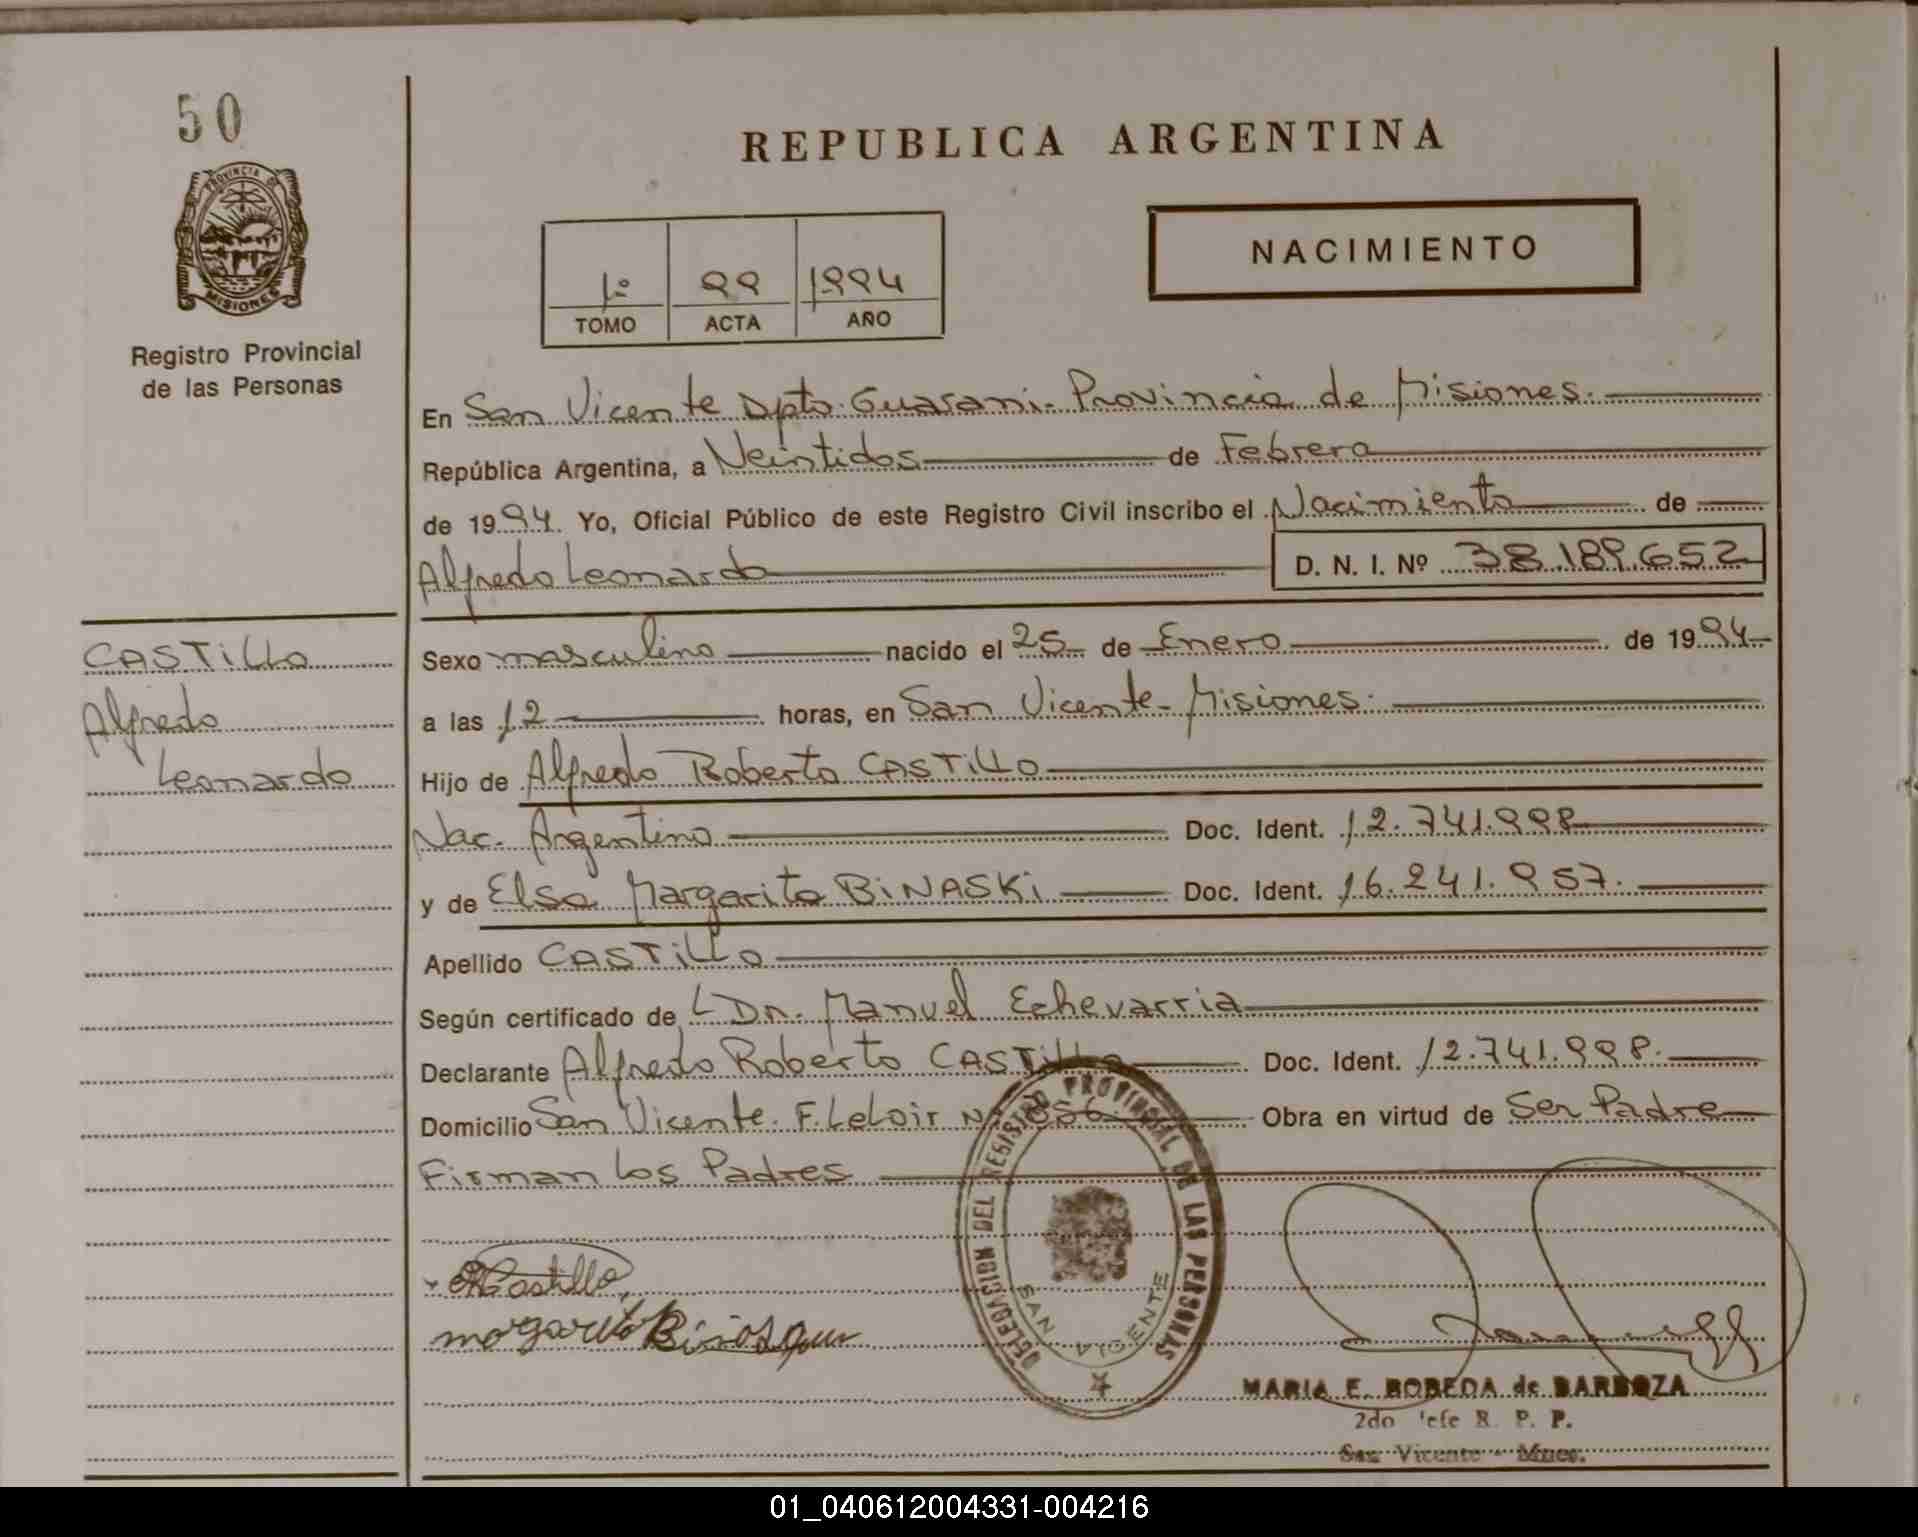 50
PROVINCIA DE
MISIONES
Registro Provincial
de las Personas
REPUBLICA ARGENTINA
NACIMIENTO
1º 99 1994
TOMO ACTA AÑO
En San Vicente Dpto. Guarani. Provincia de Misiones.
República Argentina, a Veintidos de Febrero
de 1994. Yo, Oficial Público de este Registro Civil inscribo el Nacimiento de
Alfredo Leonardo D. N. I. Nº 38.189.652
CASTILLO
Alfredo
Leonardo
Sexo masculino nacido el 25 de Enero de 1994
a las 12 horas, en San Vicente - Misiones.
Hijo de Alfredo Roberto CASTILLO
Nac. Argentino Doc. Ident. 12.741.998
y de Elsa Margarita BINASKI Doc. Ident. 16.241.957.
Apellido CASTILLO
Según certificado de Manuel Echevarria
Declarante Alfredo Roberto CASTILLO Doc. Ident. 12.741.998.
Domicilio San Vicente. F. Leloir Nº Obra en virtud de Ser Padre
Firman los Padres
Castillo
margarita
DELEGACION DEL REGISTRO PROVINCIAL DE LAS PERSONAS
SAN VICENTE
MARIA E. BOBEDA de BARBOZA
2do Jefe R. P. P.
San Vicente - Mnes.
01_040612004331-004216